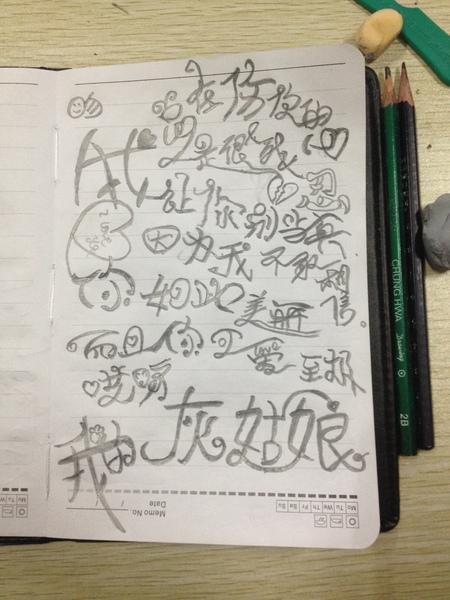 总在伤你的心
我 总是很残忍
让你别当真
I Love
因为我不敢相信.
你如此美丽
而且你可爱至极
我的灰姑娘
Memo No.
Date / /
Mo Tu We Th Fr Sa Su
Mo Tu
CHUNG HWA Drawing 2B